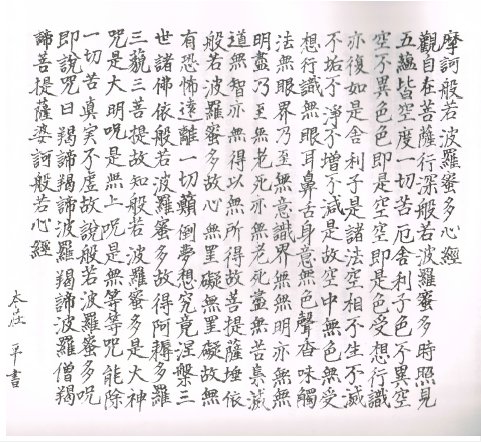 摩訶般若波羅蜜多心經
觀自在菩薩行深般若波羅蜜多時照見
五蘊皆空度一切苦厄舍利子色不異空
空不異色色即是空空即是色受想行識
亦復如是舍利子是諸法空相不生不滅
不垢不淨不增不減是故空中無色無受
想行識無眼耳鼻舌身意無色聲香味觸
法無眼界乃至無意識界無無明亦無無
明盡乃至無老死亦無老死盡無苦集滅
道無智亦無得以無所得故菩提薩埵依
般若波羅蜜多故心無罣礙無罣礙故無
有恐怖遠離一切顛倒夢想究竟涅槃三
世諸佛依般若波羅蜜多故得阿耨多羅
三藐三菩提故知般若波羅蜜多是大神
咒是大明咒是無上咒是無等等咒能除
一切苦真実不虛故說般若波羅蜜多咒
即說咒曰羯諦羯諦波羅羯諦波羅僧羯
諦菩提薩婆訶般若心經
書